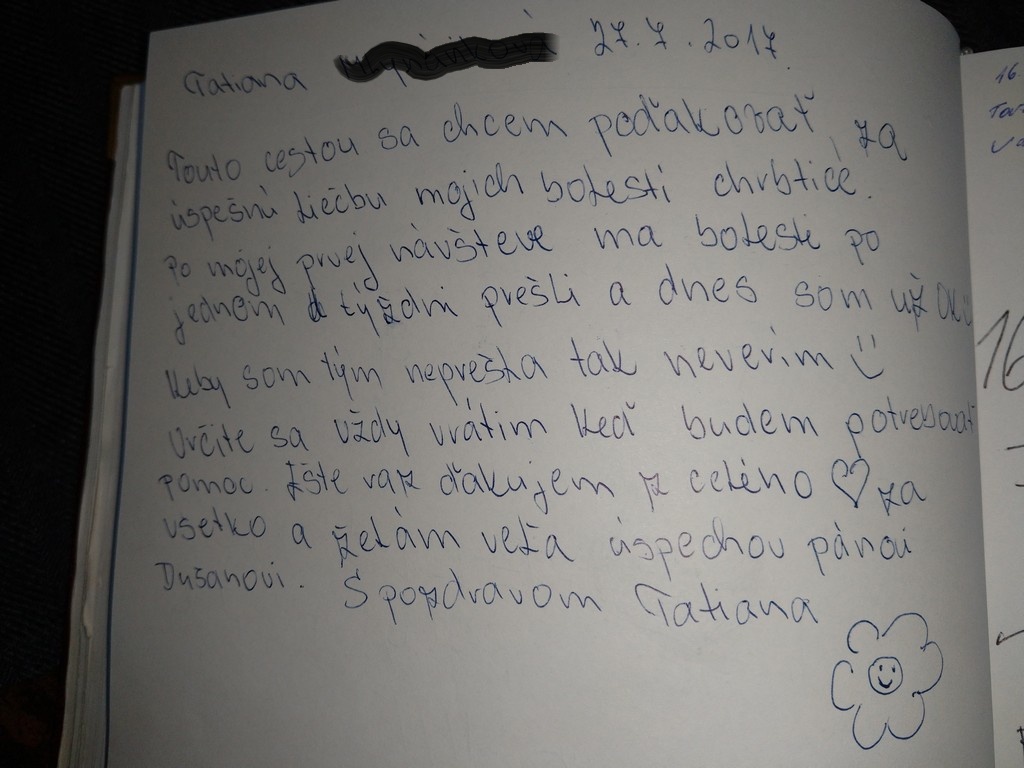 Tatiana 27.7.2017
Touto cestou sa chcem poďakovať za
úspešnú liečbu mojich bolesti chrbtice.
Po mojej prvej návšteve ma bolesti po
jednom týždni prešli a dnes som už ok
Keby som tým neprešla tak neverím
Určite sa vždy vrátim keď budem potrebovať
pomoc. Ešte raz ďakujem z celého ♡ za
všetko a želám veľa úspechov pánovi
Dušanovi. S pozdravom Tatiana
16.
16